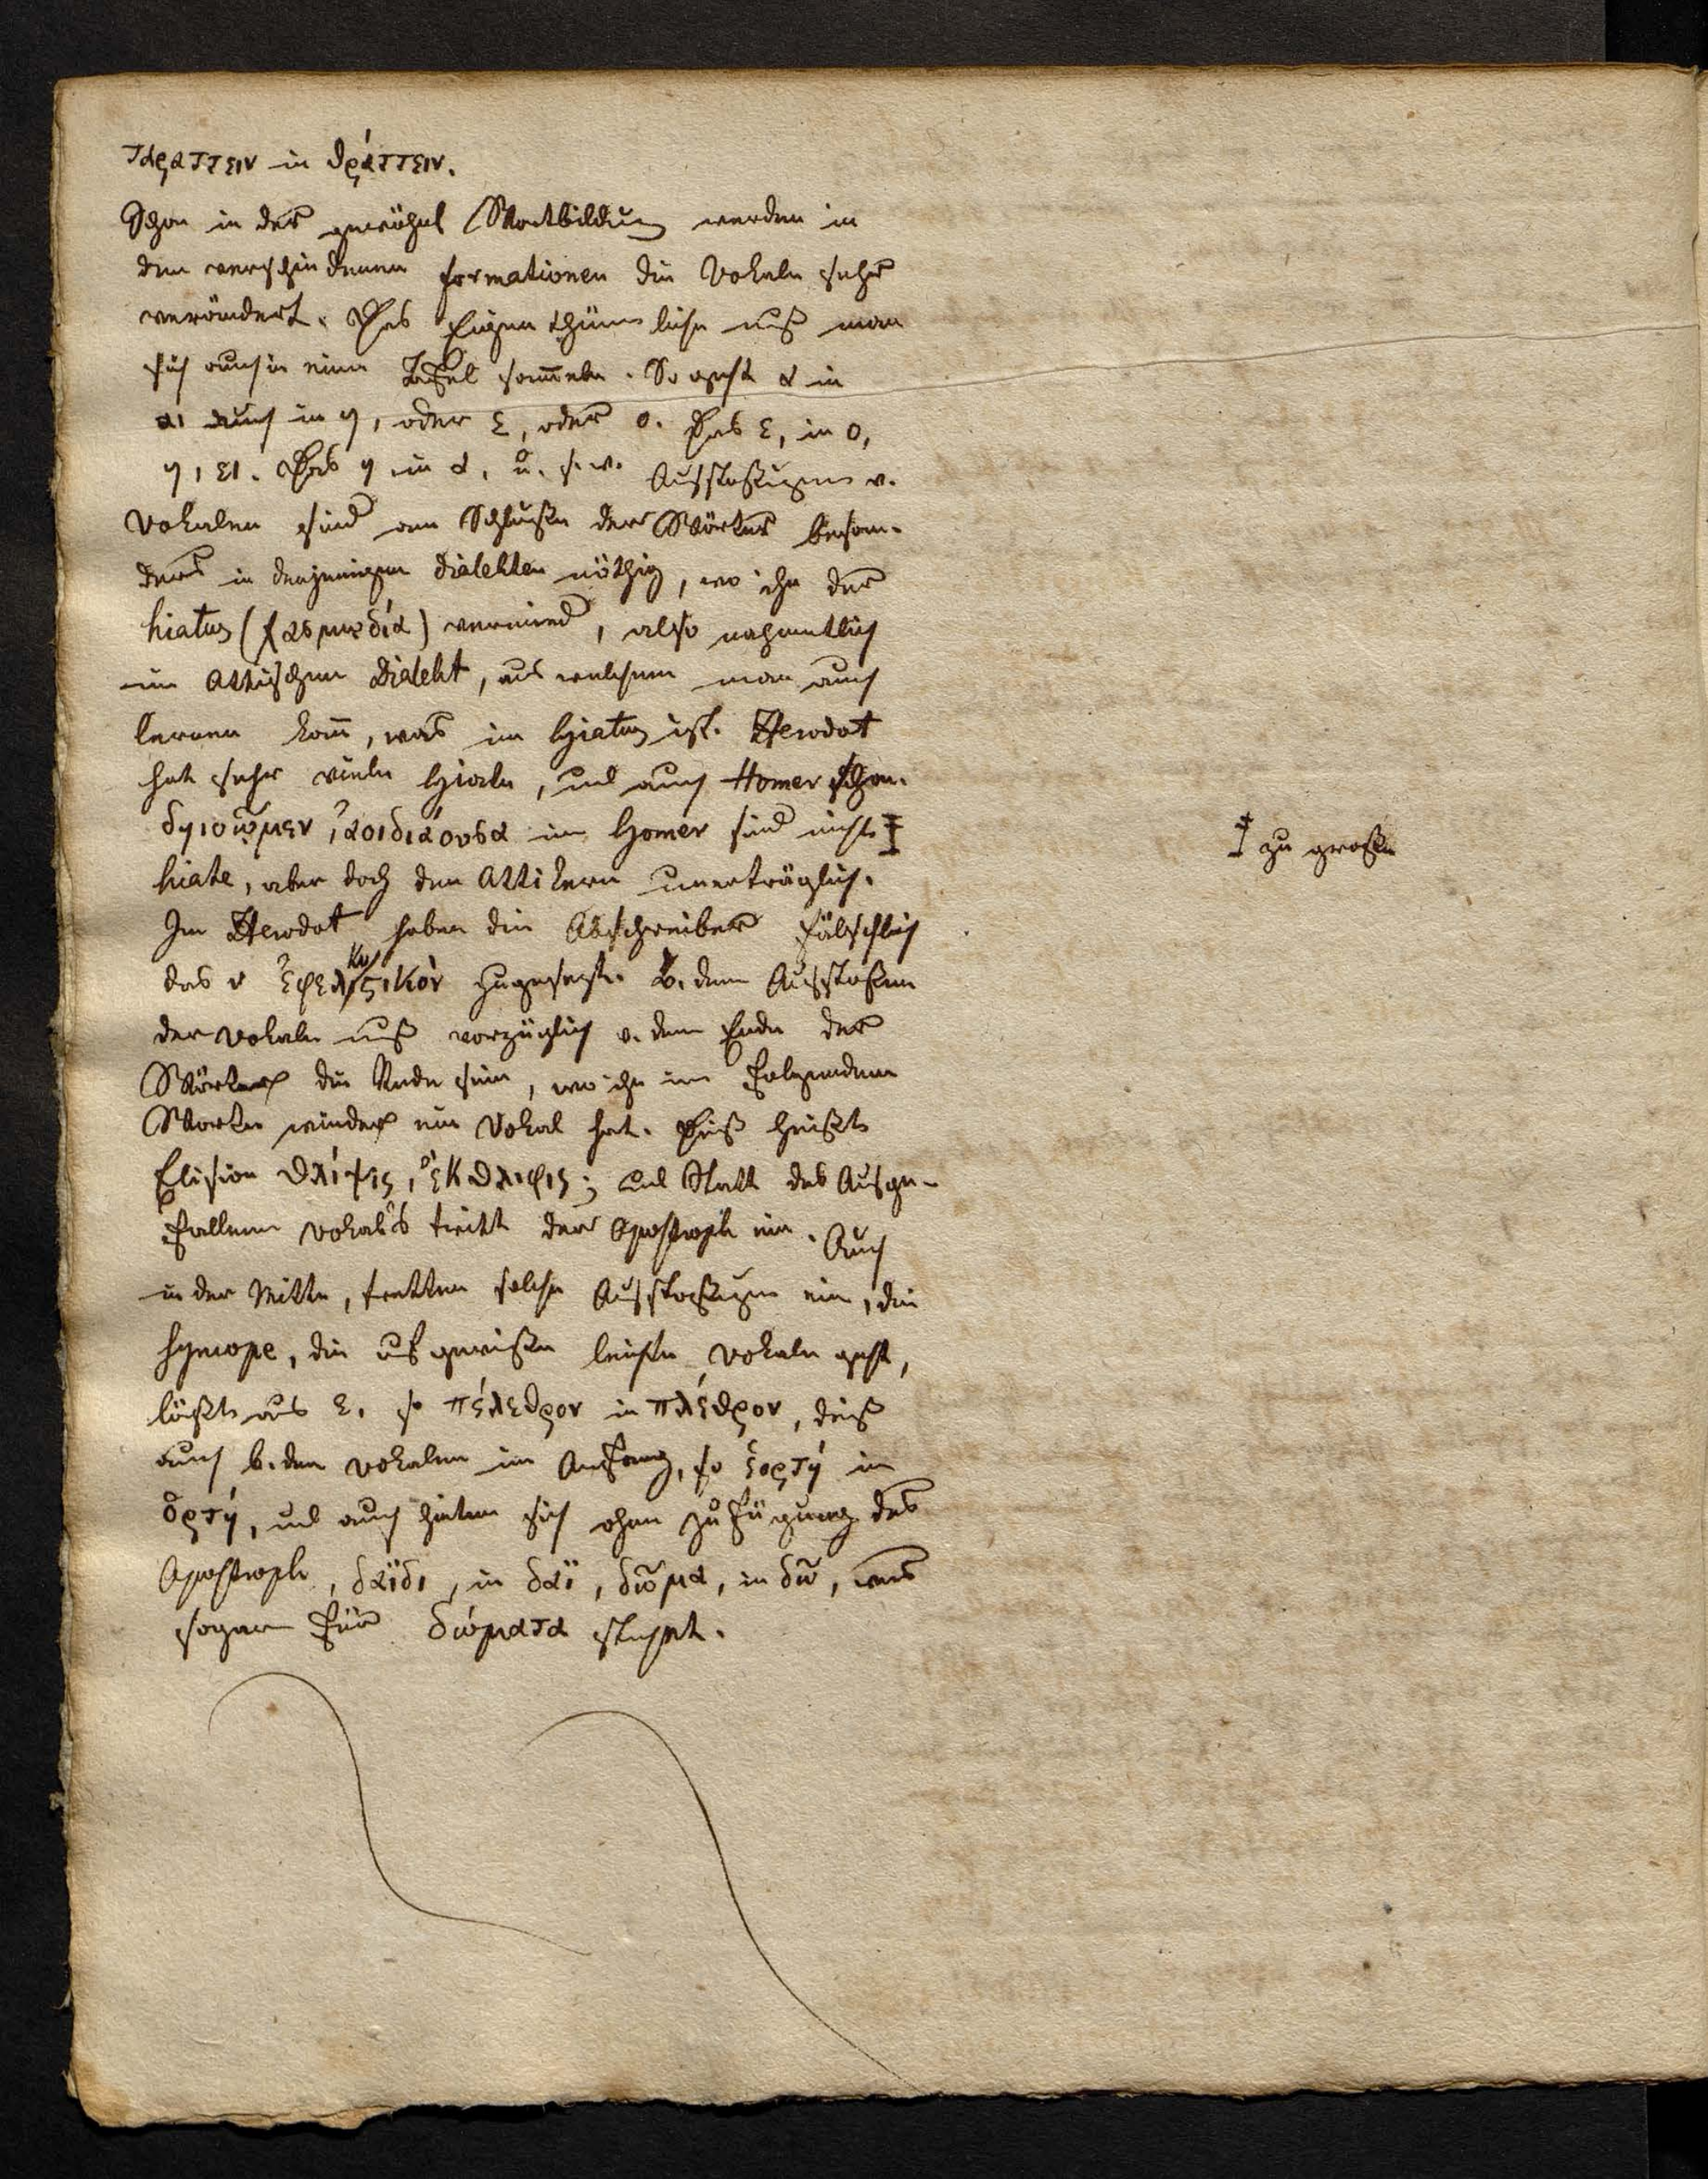 ταραττειν in θράττειν.
Schon in der gewöhnl Wortbildung werden in
den verschiedenen formationen die Vokale sehr
verändert. Das Eigenthümliche muß man
sich auch in eine Tafel sam̅eln. So geht α in
αι auch in η, oder ε, oder ο. Das ε, in ο,
η, ει. Das η in α, u. s. w. Ausstoßungen v.
Vokalen sind am Schluße der Wörter beson-
ders in denjenigen Dialekten nöthig, wo ihr der
hiatus (χασμῳδία) vermied, also nahmentlich
im Attischen Dialekt, aus welchem man auch
lernen kan̅, was im Hiatus ist. Herodot
hat sehr viele Hiate, und auch Homer schon.
δηιοῳμεν, ἀοιδιάουσα im Homer sind nicht ‡
hiate, aber doch den Attikern unerträglich.
Im Herodot haben die Abschreiber fälschlich
das ν ἐφελκυϛικὸν zugesetzt. B. dem Ausstoßen
der Vokale muß vorzüglich v. dem Ende der
Wörter die Rede sein, wo ihr im folgendem
Worte wieder ein Vokal hat. Dieß heißt
Elision θλίψις, ἔκθλιψις; und Statt des Ausge-
fallenen Vokal's tritt der Apostroph ein. Auch
in der Mitte, tretten solche Ausstoßungen ein, die
Syncope, die auf gewißen leichte Vokale geht,
läßt aus ε. so πέλεθρον in πλέθρον, dieß
auch b. den Vokalen im Anfang, so ἑορτή in
ὁρτή, und auch hinten sich ohne Zufügung des
Apostroph, δαϊδι, in δαϊ, δῶμα, in δῶ, was
sogar für δώματα stehet.
‡ zu große